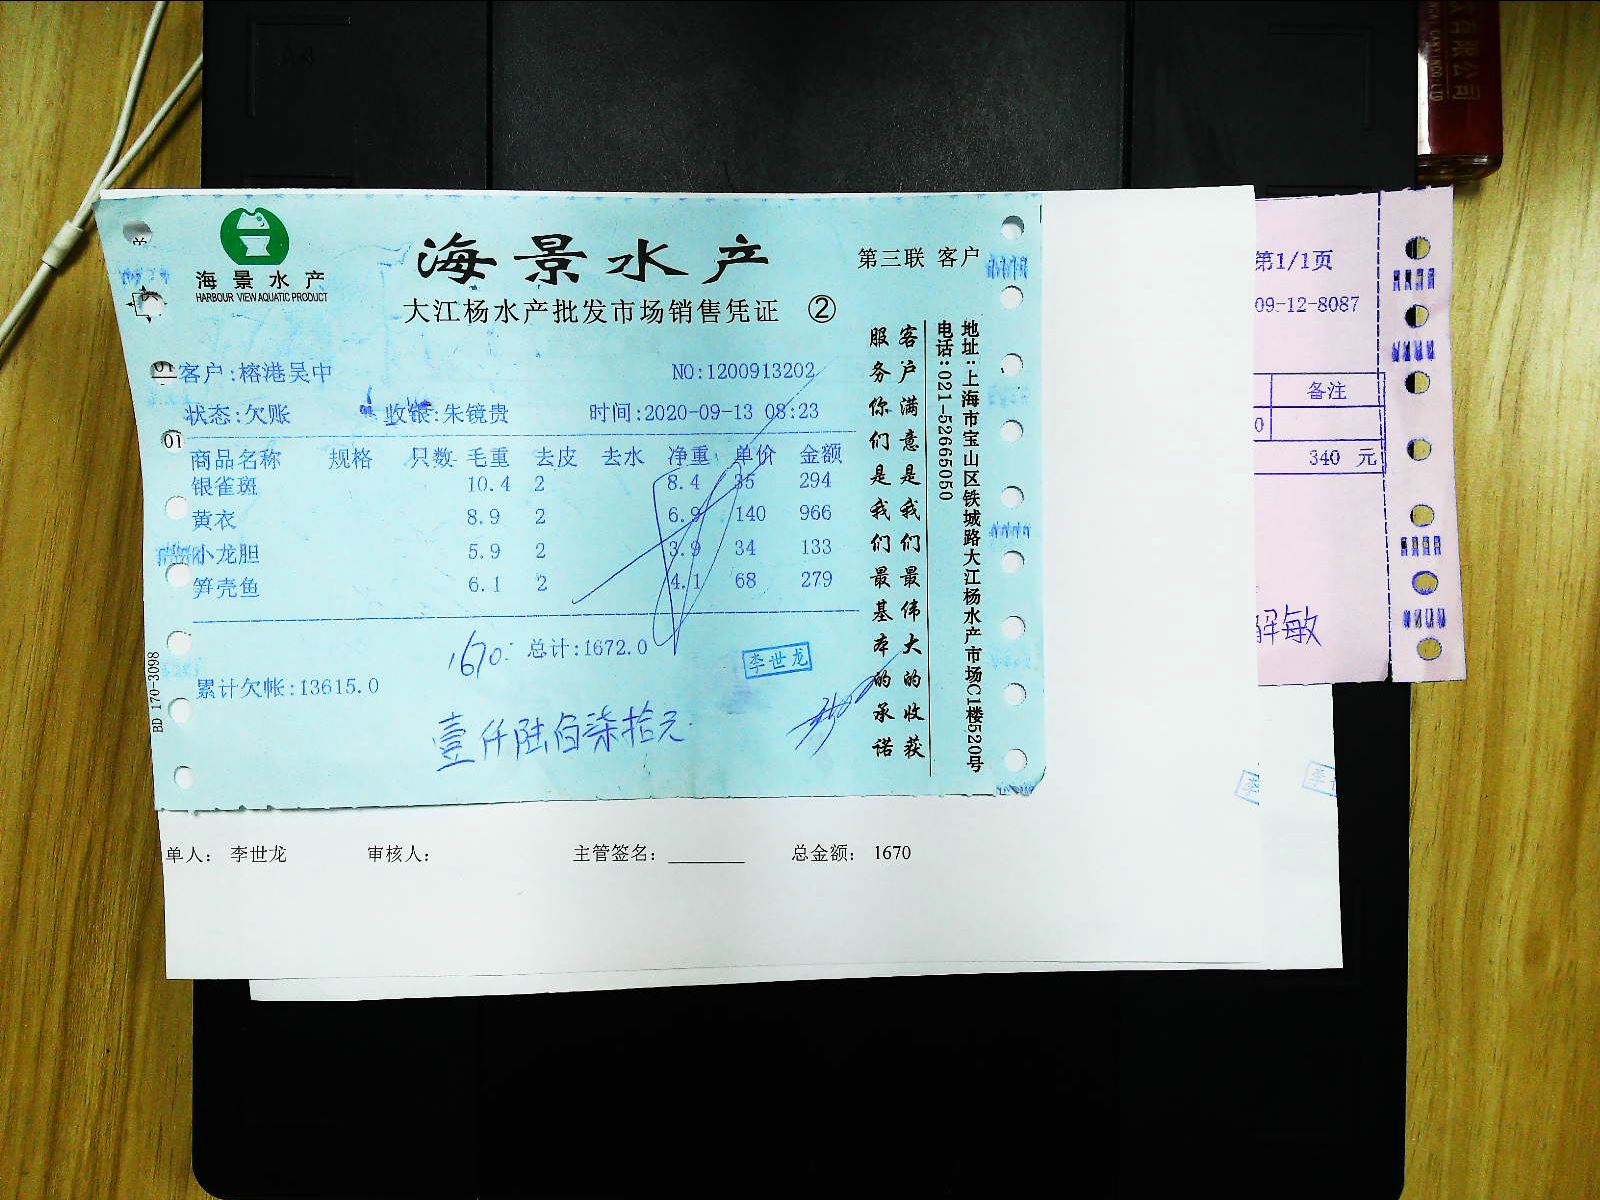 海景水产
HARBOUR VIEW AQUATIC PRODUCT
海景水产
第三联 客户
大江杨水产批发市场销售凭证 ②
客户:榕港吴中 NO:1200913202
状态:欠账 收银:朱镜贵 时间:2020-09-13 08:23
商品名称 规格 只数 毛重 去皮 去水 净重 单价 金额
银雀斑 10.4 2 8.4 35 294
黄衣 8.9 2 6.9 140 966
小龙胆 5.9 2 3.9 34 133
笋壳鱼 6.1 2 4.1 68 279
1670. 总计:1672.0
李世龙
累计欠帐:13615.0
壹仟陆佰柒拾元
客户满意是我们最伟大的收获
服务你们是我们最基本的承诺
地址:上海市宝山区铁城路大江杨水产市场C1楼520号
电话:021-52665050
BD 170-3098
01
单人: 李世龙 审核人: 主管签名: 总金额: 1670
第1/1页
09-12-8087
备注
0
340 元
解敏
李
李世
有限公司
CO.,LTD